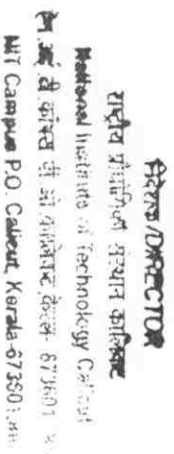 निदेशक /DIRECTOR
राष्ट्रीय प्रौद्योगिकी संस्थान कालिकट
National Institute of Technology Calicut
673601
NIT Campus P.O. Calicut, Kerala-673601